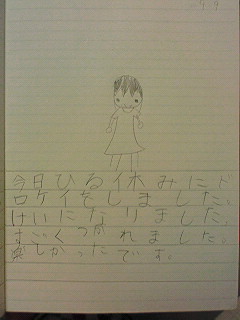 今日ひる休みにド
ロケイをしました。
けいになりました。
すごくつ疲れました。
楽しかったでいす。